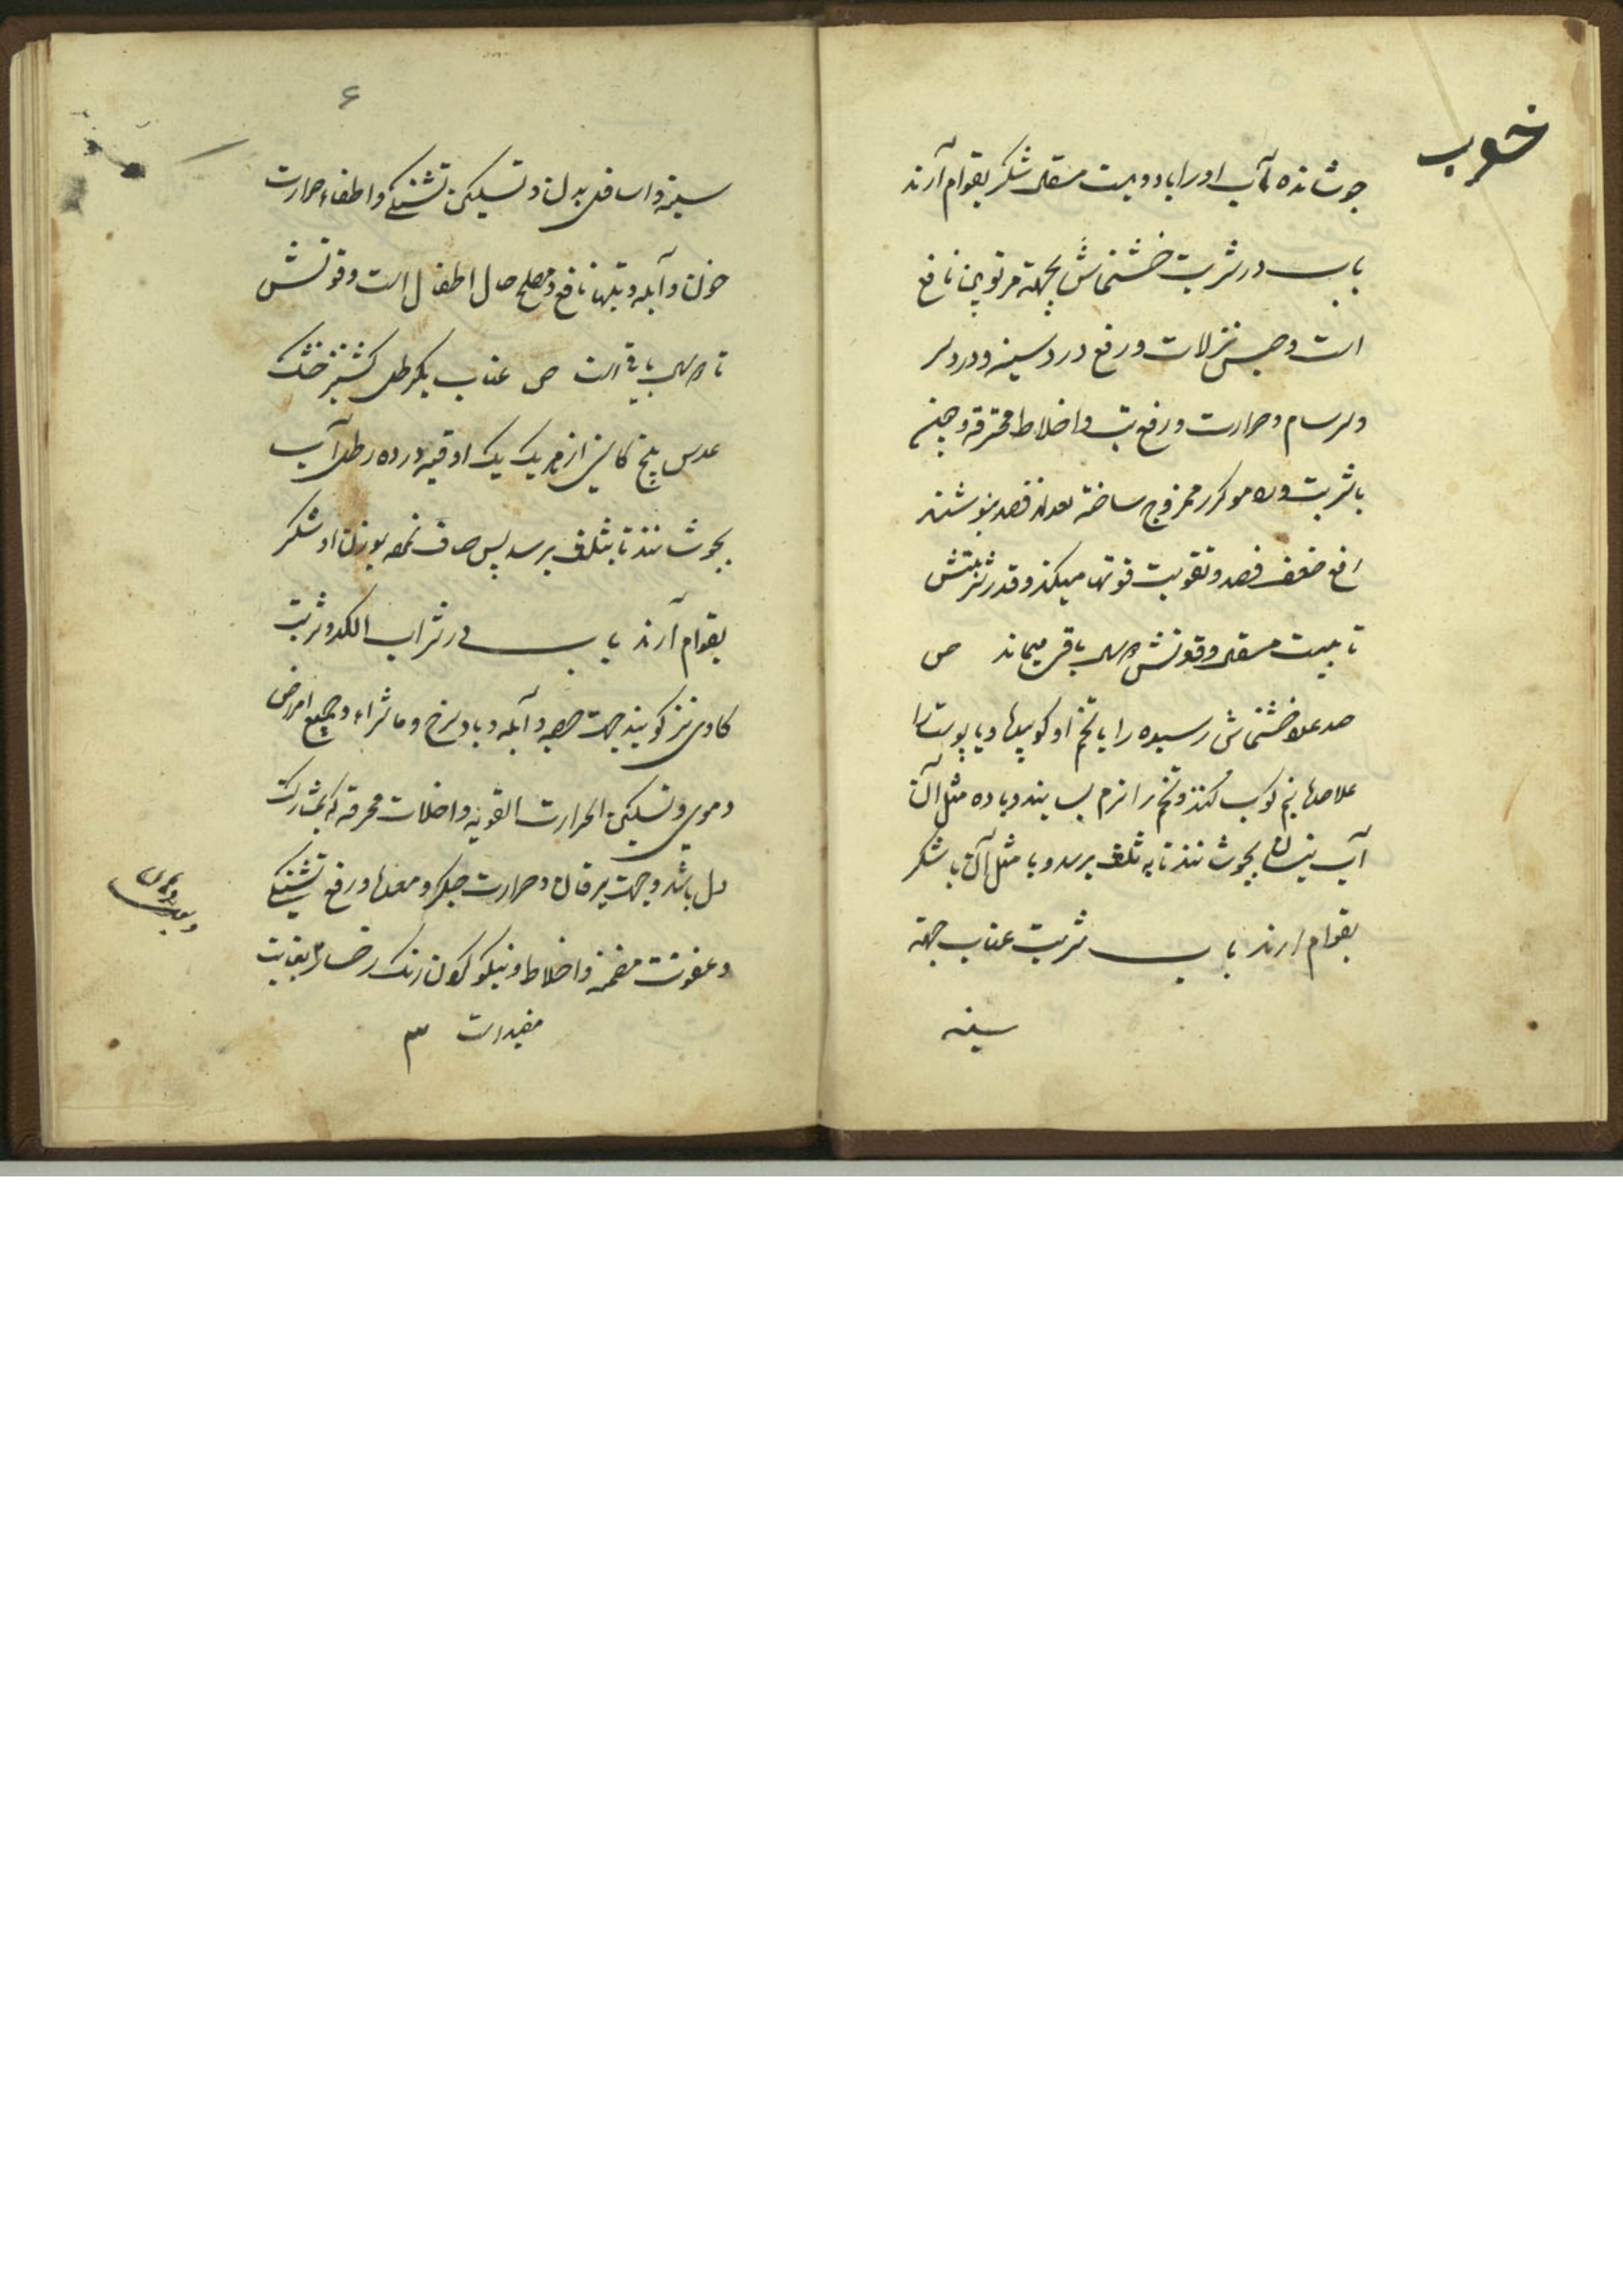 خوب
جوشانده آب او را با دویست مثقال شکر بقوام آرند
باب در شربت خشخاش بجهة مرتوبین نافع
است و حبس نزلات و رفع درد سینه و درد سر
و سرسام و حرارت و رفع تب و اخلاط محترقه و چون
با شربت ورد مکرر ممزوج ساخته بعد از فصد بنوشند
رفع ضعف فصد و تقویت قوتها میکند و قدر شربتش
تا بیست مثقال و قوتش باقی میماند ص
صد عدد خشخاش رسیده را با تخم او کوبیده و یا پوست را
علاحده نیم کوب کنند و تخم را نرم بسایند و با ده مثل آن
آب نیسان بجوشانند تا به ثلث برسد و با مثل آن با شکر
بقوام ارند باب شربت عناب جهة
سینه
۶
سینه و اسافل بدن و تسکین تشنگی و اطفاء حرارت
خون و آبله و تبها نافع و مصلح حال اطفال است و قوتش
تا باقی است ص عناب یکرطل کشنیز خشک
عدس بیخ کاسنی از هر یک یک اوقیه در ده رطل آب
بجوشانند تا بثلث برسد پس صاف نموده بوزن او شکر
بقوام آرند باب در شراب الکدر و شربت
کادی نیز گویند جهت حصبه و آبله و باد سرخ و ماشراء و جمیع امراض
دموی و تسکین الحرارت القویه و اخلات محرقه که بمشارکت
دل باشد و جهت یرقان و حرارت جگر و معده و رفع تشنگی
و عفونت مضمنه و اخلاط و نیکو کردن رنک رخسار بغایت
مفید است